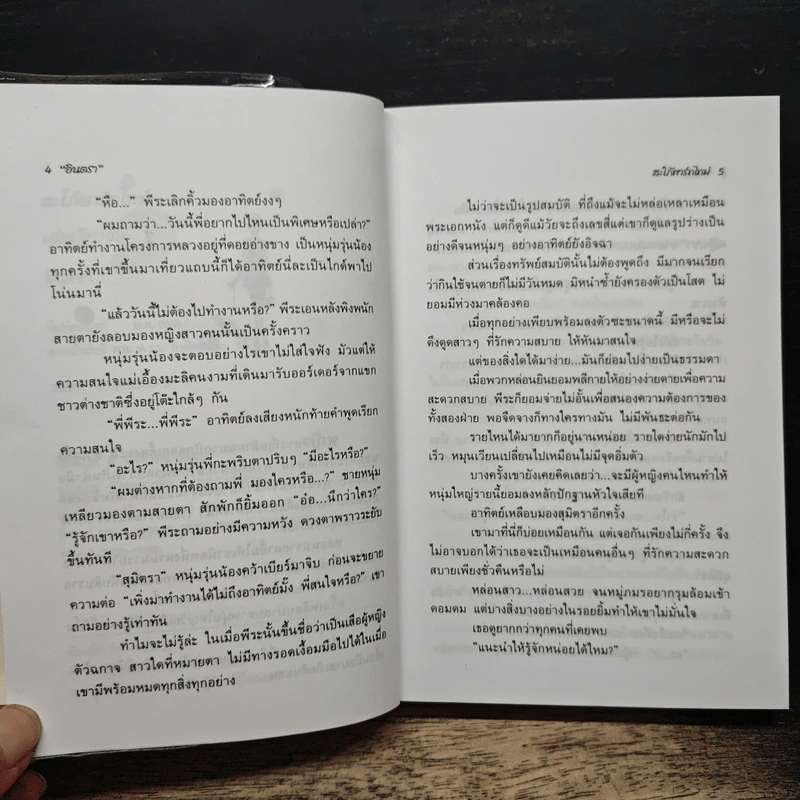 4 “อินตรา”
“หือ...” พีระเลิกคิ้วมองอาทิตย์งงๆ
“ผมถามว่า...วันนี้พี่อยากไปไหนเป็นพิเศษหรือเปล่า?”
อาทิตย์ทำงานโครงการหลวงอยู่ที่ดอยอ่างขาง เป็นหนุ่มรุ่นน้อง
ทุกครั้งที่เขาขึ้นมาเที่ยวแถบนี้ก็ได้อาทิตย์นี่ละเป็นไกด์พาไป
โน่นมานี่
“แล้ววันนี้ไม่ต้องไปทำงานหรือ?” พีระเอนหลังพิงพนัก
สายตายังลอบมองหญิงสาวคนนั้นเป็นครั้งคราว
หนุ่มรุ่นน้องจะตอบอย่างไรเขาไม่ใส่ใจฟัง มัวแต่ให้
ความสนใจแม่เอื้องมะลิคนงามที่เดินมารับออร์เดอร์จากแขก
ชาวต่างชาติซึ่งอยู่โต๊ะใกล้ๆ กัน
“พี่พีระ...พี่พีระ” อาทิตย์ลงเสียงหนักท้ายคำพูดเรียก
ความสนใจ
“อะไร?” หนุ่มรุ่นพี่กะพริบตาปริบๆ “มีอะไรหรือ?”
“ผมต่างหากที่ต้องถามพี่ มองใครหรือ...?” ชายหนุ่ม
เหลียวมองตามสายตา สักพักก็ยิ้มออก “อ๋อ...นึกว่าใคร?”
“รู้จักเขาหรือ?” พีระถามอย่างมีความหวัง ดวงตาพราวระยับ
ขึ้นทันที
“สุมิตรา” หนุ่มรุ่นน้องคว้าเบียร์มาจิบ ก่อนจะขยาย
ความต่อ “เพิ่งมาทำงานได้ไม่ถึงอาทิตย์มั้ง พี่สนใจหรือ?” เขา
ถามอย่างรู้เท่าทัน
ทำไมจะไม่รู้ล่ะ ในเมื่อพีระนั้นขึ้นชื่อว่าเป็นเสือผู้หญิง
ตัวฉกาจ สาวใดที่หมายตา ไม่มีทางรอดเงื้อมมือไปได้ในเมื่อ
เขามีพร้อมหมดทุกสิ่งทุกอย่าง
สะใภ้พาร์ทไทม์ 5
ไม่ว่าจะเป็นรูปสมบัติ ที่ถึงแม้จะไม่หล่อเหลาเหมือน
พระเอกหนัง แต่ก็ดูดีแม้วัยจะถึงเลขสี่แต่เขาก็ดูแลรูปร่างเป็น
อย่างดีจนหนุ่มๆ อย่างอาทิตย์ยังอิจฉา
ส่วนเรื่องทรัพย์สมบัตินั้นไม่ต้องพูดถึง มีมากจนเรียก
ว่ากินใช้จนตายก็ไม่มีวันหมด มิหนำซ้ำยังครองตัวเป็นโสด ไม่
ยอมมีห่วงมาคล้องคอ
เมื่อทุกอย่างเพียบพร้อมลงตัวซะขนาดนี้ มีหรือจะไม่
ดึงดูดสาวๆ ที่รักความสบาย ให้หันมาสนใจ
แต่ของสิ่งใดได้มาง่าย...มันก็ย่อมไปง่ายเป็นธรรมดา
เมื่อพวกหล่อนยินยอมพลีกายให้อย่างง่ายดายเพื่อความ
สะดวกสบาย พีระก็ยอมจ่ายไม่อั้นเพื่อสนองความต้องการของ
ทั้งสองฝ่าย พอจืดจางก็ทางใครทางมัน ไม่มีพันธะต่อกัน
รายไหนได้มายากก็อยู่นานหน่อย รายใดง่ายนักมักไป
เร็ว หมุนเวียนเปลี่ยนไปเหมือนไม่มีจุดอิ่มตัว
บางครั้งเขายังเคยคิดเลยว่า...จะมีผู้หญิงคนไหนทำให้
หนุ่มใหญ่รายนี้ยอมลงหลักปักฐานหัวใจเสียที
อาทิตย์เหลือบมองสุมิตราอีกครั้ง
เขามาที่นี่ก็บ่อยเหมือนกัน แต่เจอกันเพียงไม่กี่ครั้ง จึง
ไม่อาจบอกได้ว่าเธอจะเป็นเหมือนคนอื่นๆ ที่รักความสะดวก
สบายเพียงชั่วคืนหรือไม่
หล่อนสาว...หล่อนสวย จนหมู่ภมรอยากรุมล้อมเข้า
ดอมดม แต่บางสิ่งบางอย่างในรอยยิ้มทำให้เขาไม่มั่นใจ
เธอดูยากกว่าทุกคนที่เคยพบ
“แนะนำให้รู้จักหน่อยได้ไหม?”